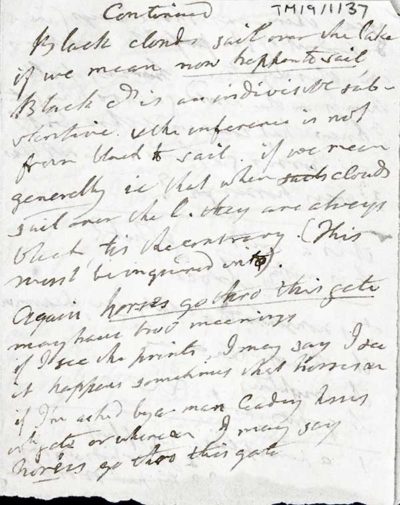 Continued
TM19/1137
Black clouds sail over the lake
if we mean now happen to sail,
Black cds is an indivisible sub-
stantive. & the inference is not
from black to sail. if we mean
generally ie that when sails clouds
sail over the l. they are always
black tis the contrary (This
must be inquired into).
Again horses go thro this gate
may have two meanings
if I see the prints, I may say I see
it happens sometimes that horses
if I'm asked by a man leading horses
gate or wherein I may say
horses go thro this gate